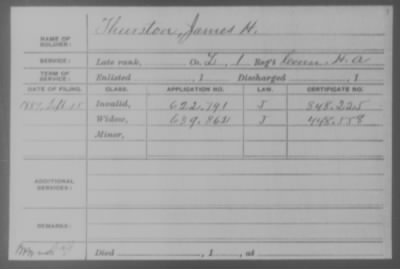 NAME OF SOLDIER: Thurston, James H.
SERVICE: Late rank, Co. L, 1 Reg't Conn. H. A
TERM OF SERVICE: Enlisted , 1 Discharged , 1
DATE OF FILING. CLASS. APPLICATION NO. LAW. CERTIFICATE NO.
1887, Sept. 15 Invalid, 622.791 J 848.225
Widow, 689.862 J 448.558
Minor,
ADDITIONAL SERVICES:
REMARKS:
Died , 1 , at